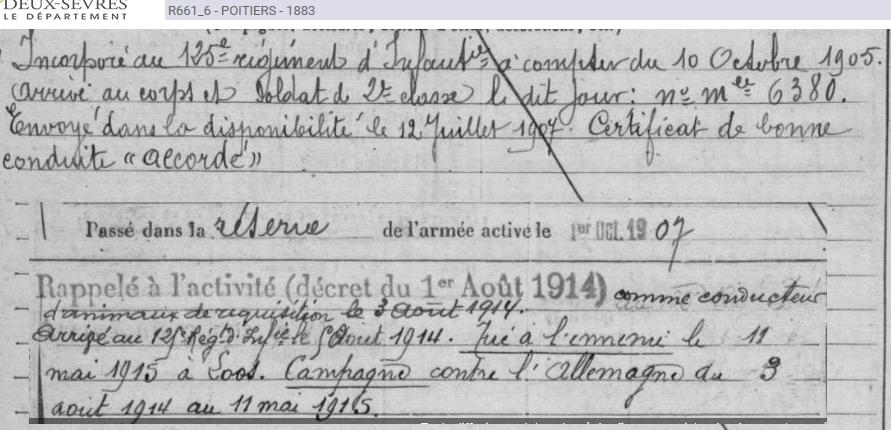 DEUX-SÈVRES
LE DÉPARTEMENT
R661_6 - POITIERS - 1883
Incorporé au 125e régiment d'Infantie à compter du 10 Octobre 1905.
arrivé au corps et soldat de 2e classe le dit jour: no mle 6380.
Envoyé dans la disponibilité le 12 Juillet 1907. Certificat de bonne
conduite « accordé »
Passé dans la réserve de l'armée active le 1er OCT. 1907
Rappelé à l'activité (décret du 1er Août 1914) comme conducteur
d'animaux de requisition le 3 août 1914.
Arrivé au 125e Régt d'Infie le Août 1914. Tué à l'ennemi le 11
mai 1915 à Loos. Campagne contre l'Allemagne du 3
août 1914 au 11 mai 1915.